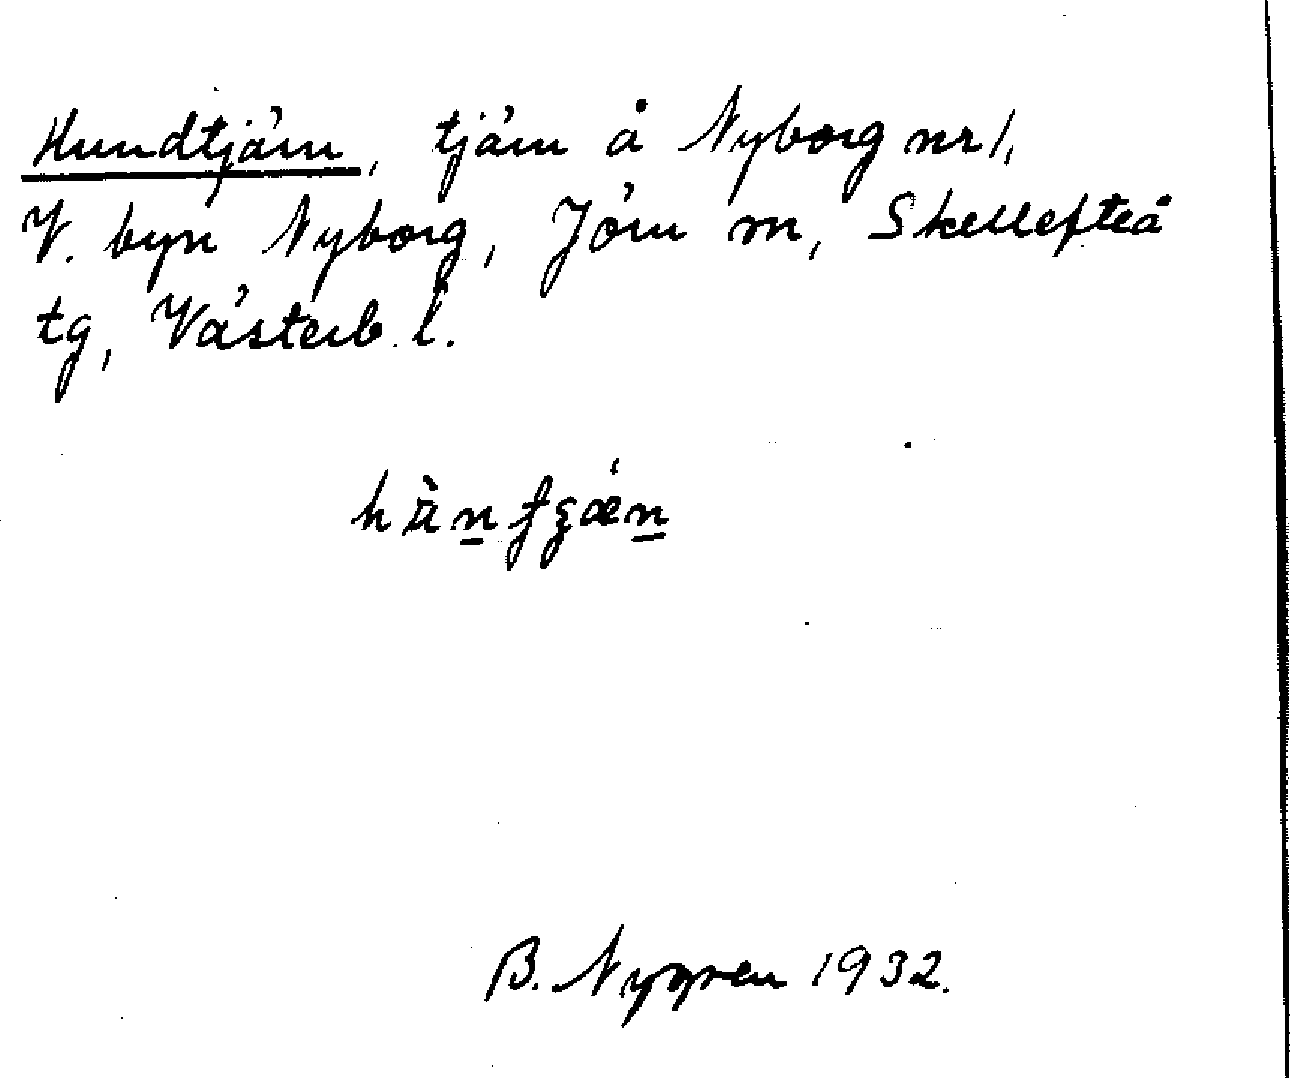 Hundtjärn, tjärn å Nyborg nr 1,
V. byn Nyborg, Jörn sn, Skellefteå
tg, Västerb. l.
B. Nygren 1932.